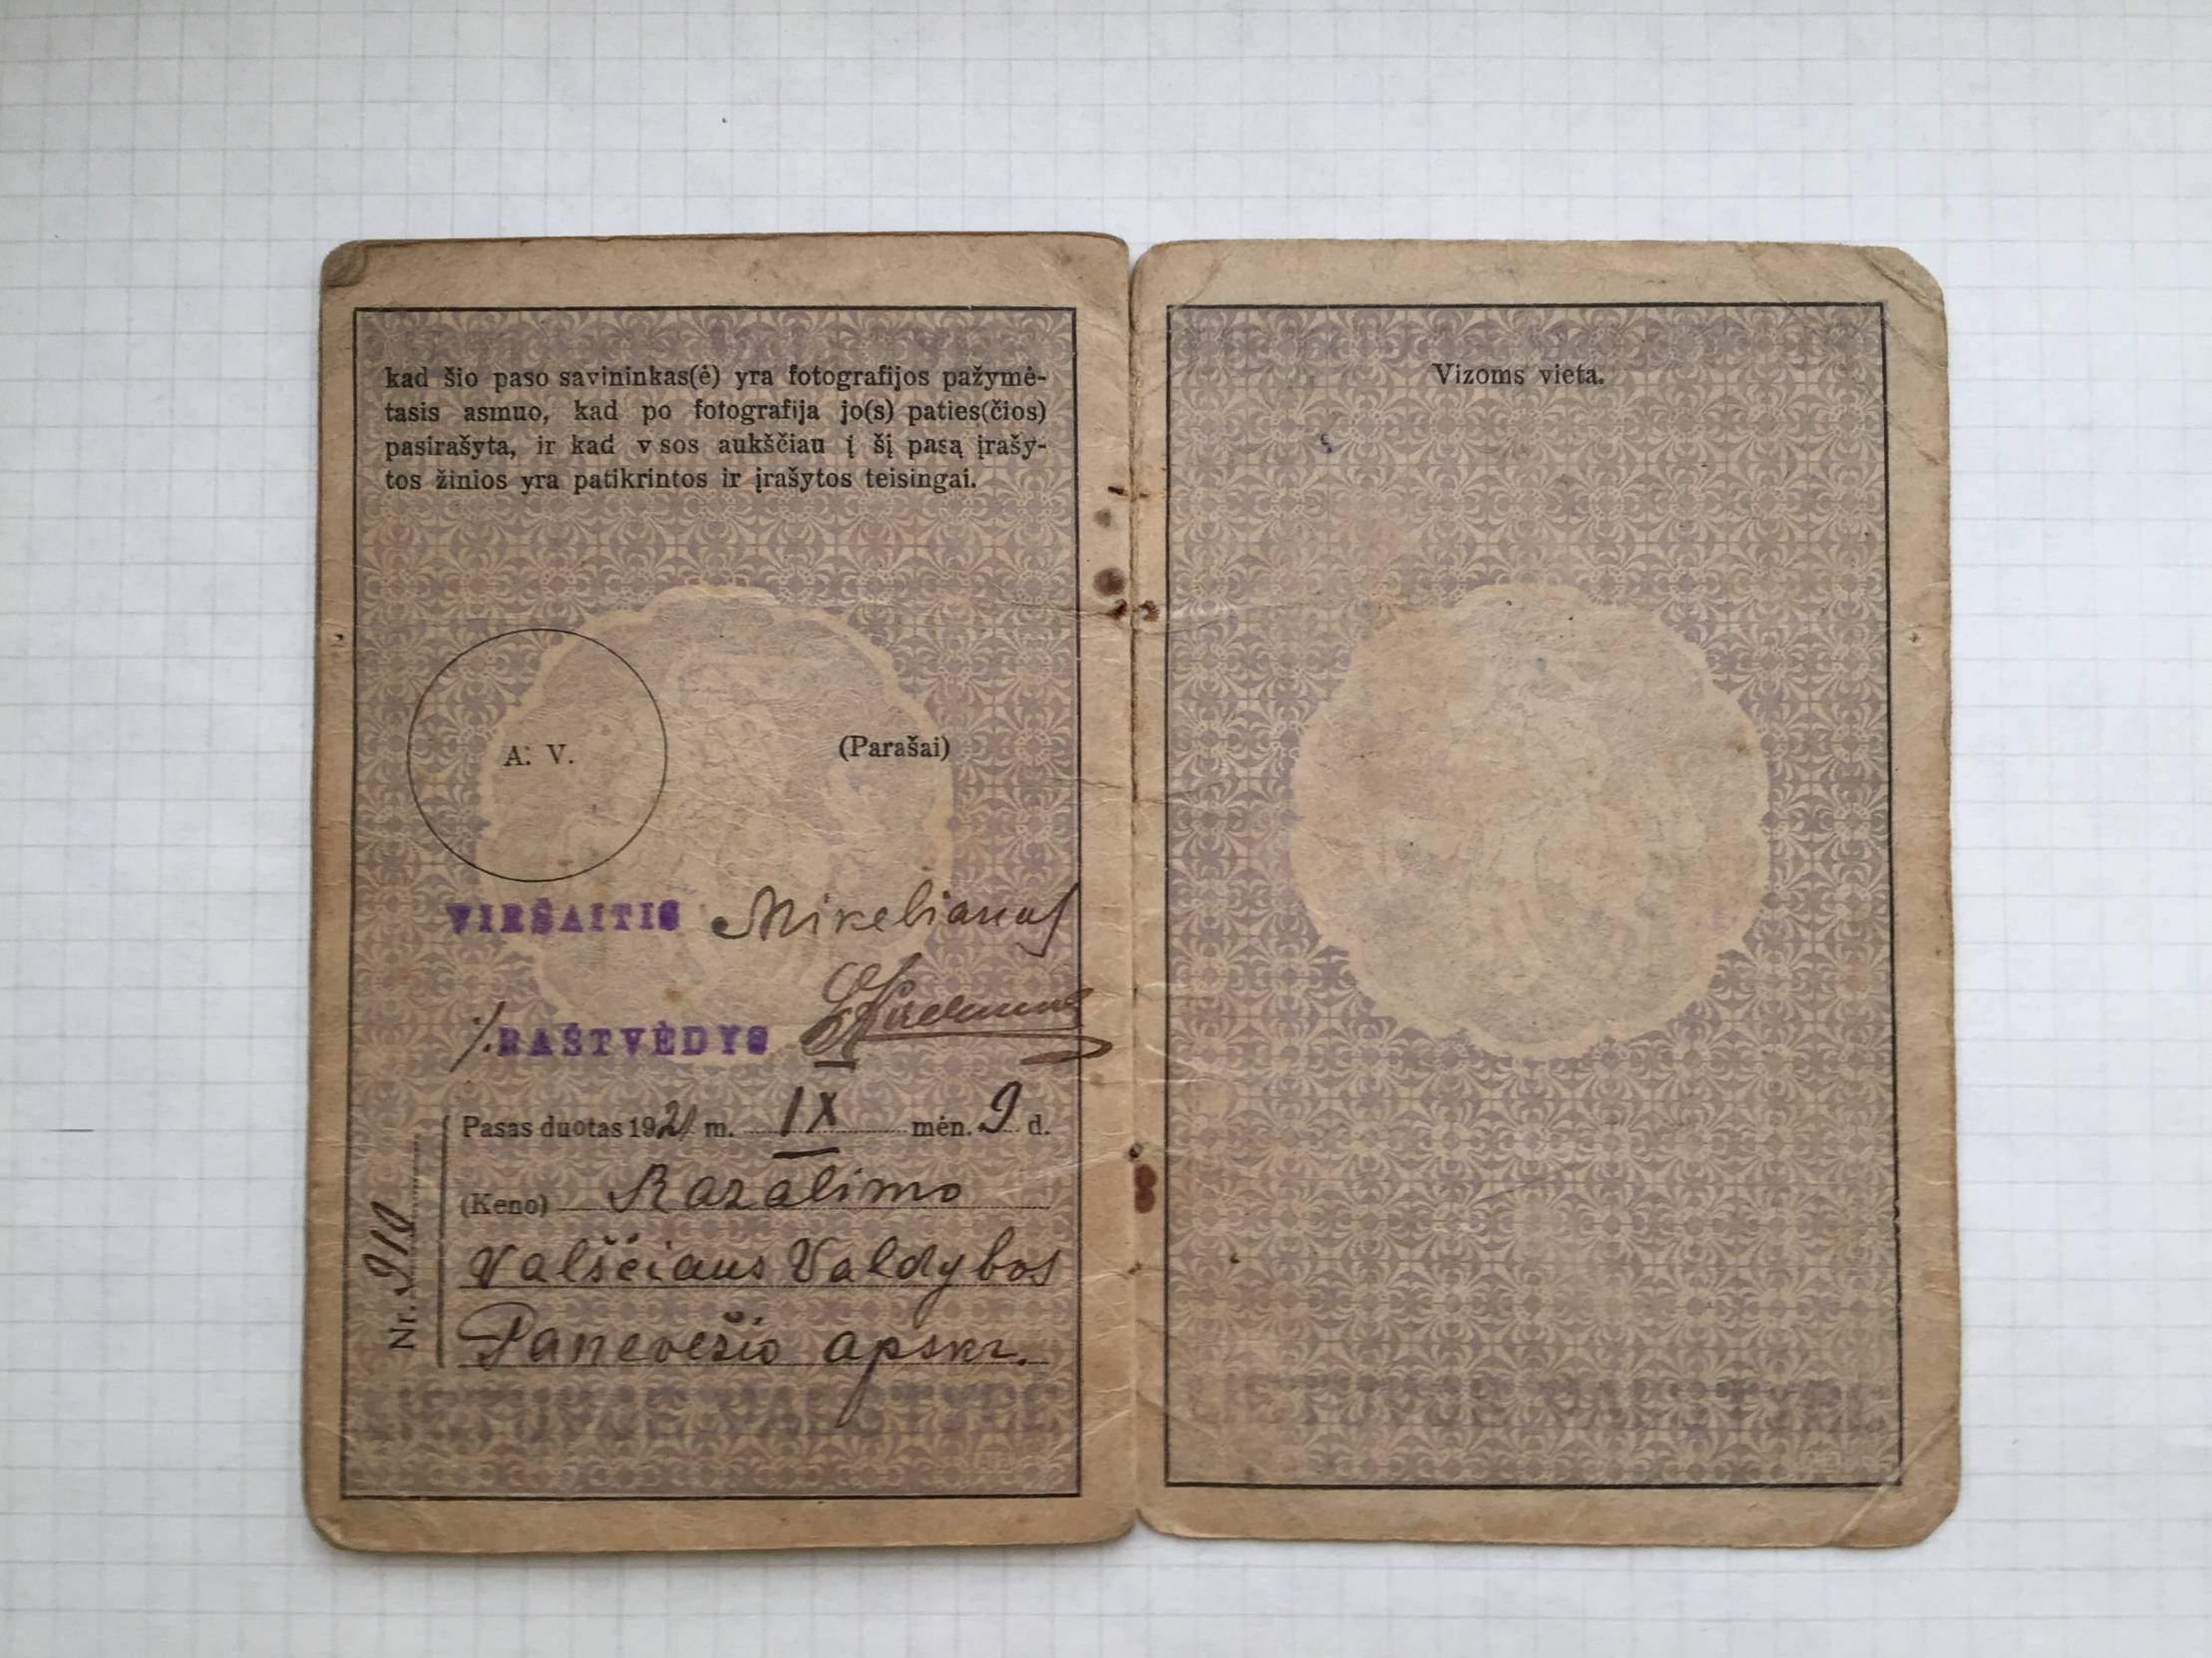 kad šio paso savininkas(ė) yra fotografijos pažymė-
tasis asmuo, kad po fotografija jo(s) paties(čios)
pasirašyta, ir kad v sos aukščiau į šį pasą įrašy-
tos žinios yra patikrintos ir įrašytos teisingai.
A. V.
(Parašai)
VIRŠAITIS Mikeliunas
RAŠTVEDYS
Pasas duotas 1921 m. IX mėn. 9 d.
(Keno) Razalimo
Valsčiaus Valdybos
Panevežio apskr.
Nr. 910
Vizoms vieta.
LIETUVOS VALSTYBĖ
LIETUVOS VALSTYBĖ